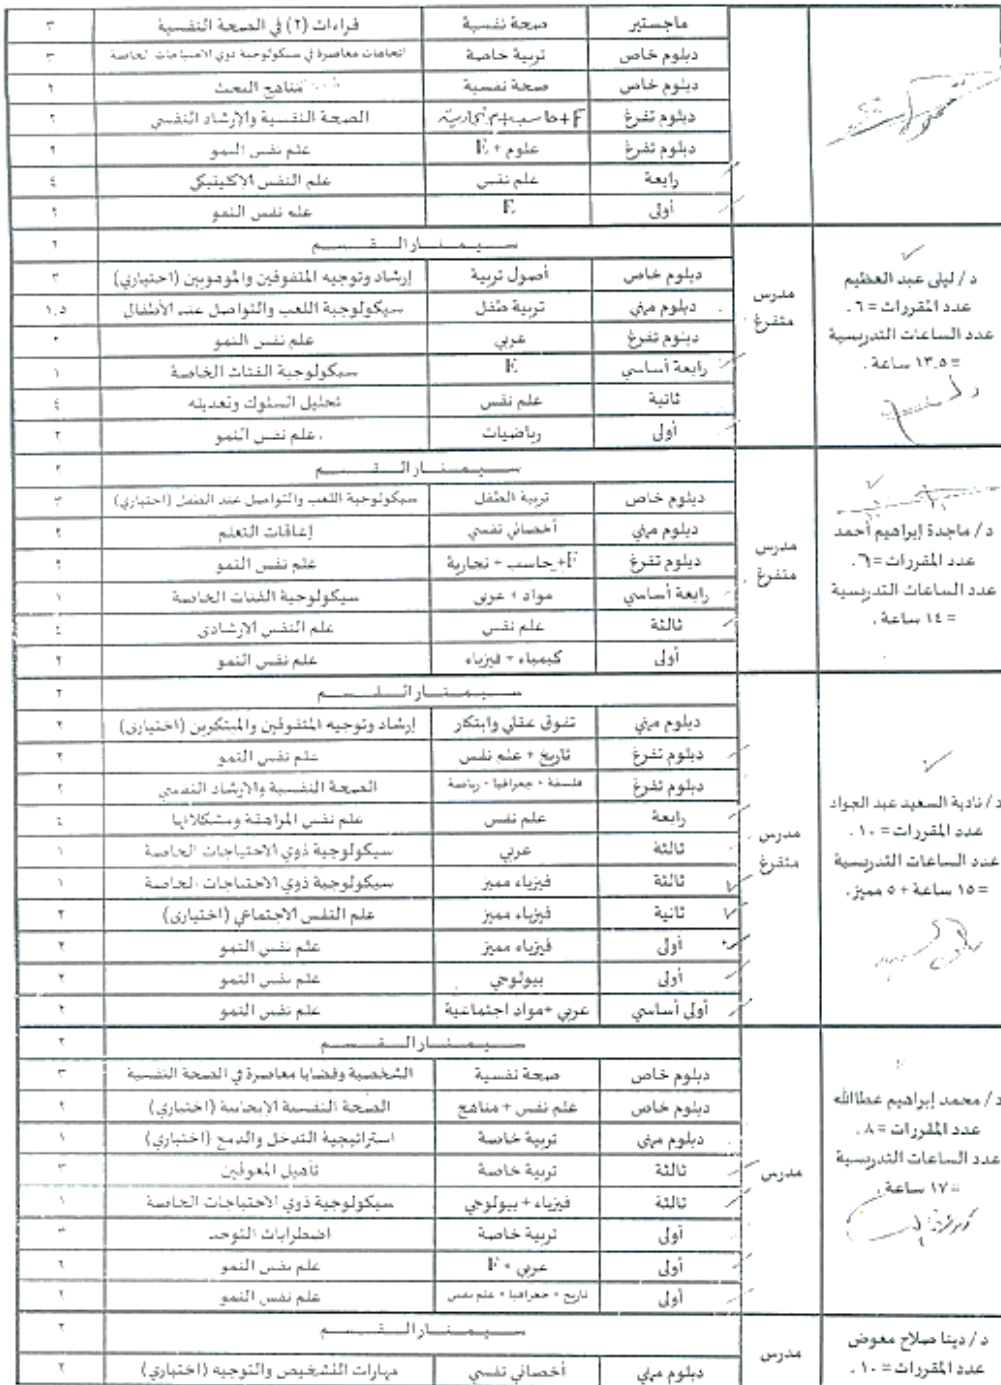 ماجستير صحة نفسية قراءات (٢) في الصحة النفسية ٣
دبلوم خاص تربية خاصة اتجاهات معاصرة في سيكولوجية ذوي الاحتياجات الخاصة ٣
دبلوم خاص صحة نفسية مناهج البحث
دبلوم تفرغ E+حاسب+تجارية الصحة النفسية والإرشاد النفسي ٢
دبلوم تفرغ علوم + E علم نفس النمو ٢
رابعة علم نفس علم النفس الإكلينيكي ٤
أولى E علم نفس النمو ٢
د / ليلى عبد العظيم
عدد المقررات = ٦ .
عدد الساعات التدريسية
= ١٣.٥ ساعة .
مدرس
متفرغ
سيمنار القسم ٢
دبلوم خاص أصول تربية إرشاد وتوجيه المتفوقين والموهوبين (اختياري) ٣
دبلوم مهني تربية طفل سيكولوجية اللعب والتواصل عند الأطفال ١.٥
دبلوم تفرغ عربي علم نفس النمو ٢
رابعة أساسي E سيكولوجية الفئات الخاصة ١
ثانية علم نفس تحليل السلوك وتعديله ٤
أولى رياضيات علم نفس النمو ٢
د / ماجدة إبراهيم أحمد
عدد المقررات =٦ .
عدد الساعات التدريسية
= ١٤ ساعة .
مدرس
متفرغ
سيمنار القسم ٢
دبلوم خاص تربية الطفل سيكولوجية اللعب والتواصل عند الطفل (اختياري) ٣
دبلوم مهني أخصائي نفسي إعاقات التعلم ٢
دبلوم تفرغ E+حاسب + تجارية علم نفس النمو ٢
رابعة أساسي مواد + عربي سيكولوجية الفئات الخاصة ١
ثالثة علم نفس علم النفس الارشادى ٤
أولى كيمياء + فيزياء علم نفس النمو ٢
د / نادية السعيد عبد الجواد
عدد المقررات = ١٠ .
عدد الساعات التدريسية
= ١٥ ساعة + ٥ مميز.
مدرس
متفرغ
سيمنار القسم ٢
دبلوم مهني تفوق عقلي وابتكار إرشاد وتوجيه المتفوقين والمبتكرين (اختيارى) ٢
دبلوم تفرغ تاريخ + علم نفس علم نفس النمو ٢
دبلوم تفرغ فلسفة + جغرافيا + رياضة الصحة النفسية والارشاد النفسي ٢
رابعة علم نفس علم نفس المراهقة ومشكلاتها ٤
ثالثة عربي سيكولوجية ذوي الاحتياجات الخاصة ١
ثالثة فيزياء مميز سيكولوجية ذوي الاحتياجات الخاصة ١
ثانية فيزياء مميز علم النفس الاجتماعي (اختيارى) ٢
أولى فيزياء مميز علم نفس النمو ٢
أولى بيولوجي علم نفس النمو ٢
أولى أساسي عربي +مواد اجتماعية علم نفس النمو ٢
د / محمد إبراهيم عطاالله
عدد المقررات = ٨ .
عدد الساعات التدريسية
= ١٧ ساعة .
مدرس
سيمنار القسم ٢
دبلوم خاص صحة نفسية الشخصية وقضايا معاصرة في الصحة النفسية ٣
دبلوم خاص علم نفس + مناهج الصحة النفسية الإيجابية (اختياري) ٢
دبلوم مهني تربية خاصة استراتيجية التدخل والدمج (اختياري) ١
ثالثة تربية خاصة تأهيل المعوقين ٣
ثالثة فيزياء + بيولوجي سيكولوجية ذوي الاحتياجات الخاصة ١
أولى تربية خاصة اضطرابات التوحد ٣
أولى عربي + E علم نفس النمو ٢
أولى تاريخ + جغرافيا + علم نفس علم نفس النمو ٢
د / دينا صلاح معوض
عدد المقررات = ١٠ .
مدرس
سيمنار القسم ٢
دبلوم مهني أخصائي نفسي مهارات التشخيص والتوجيه (اختياري) ٢